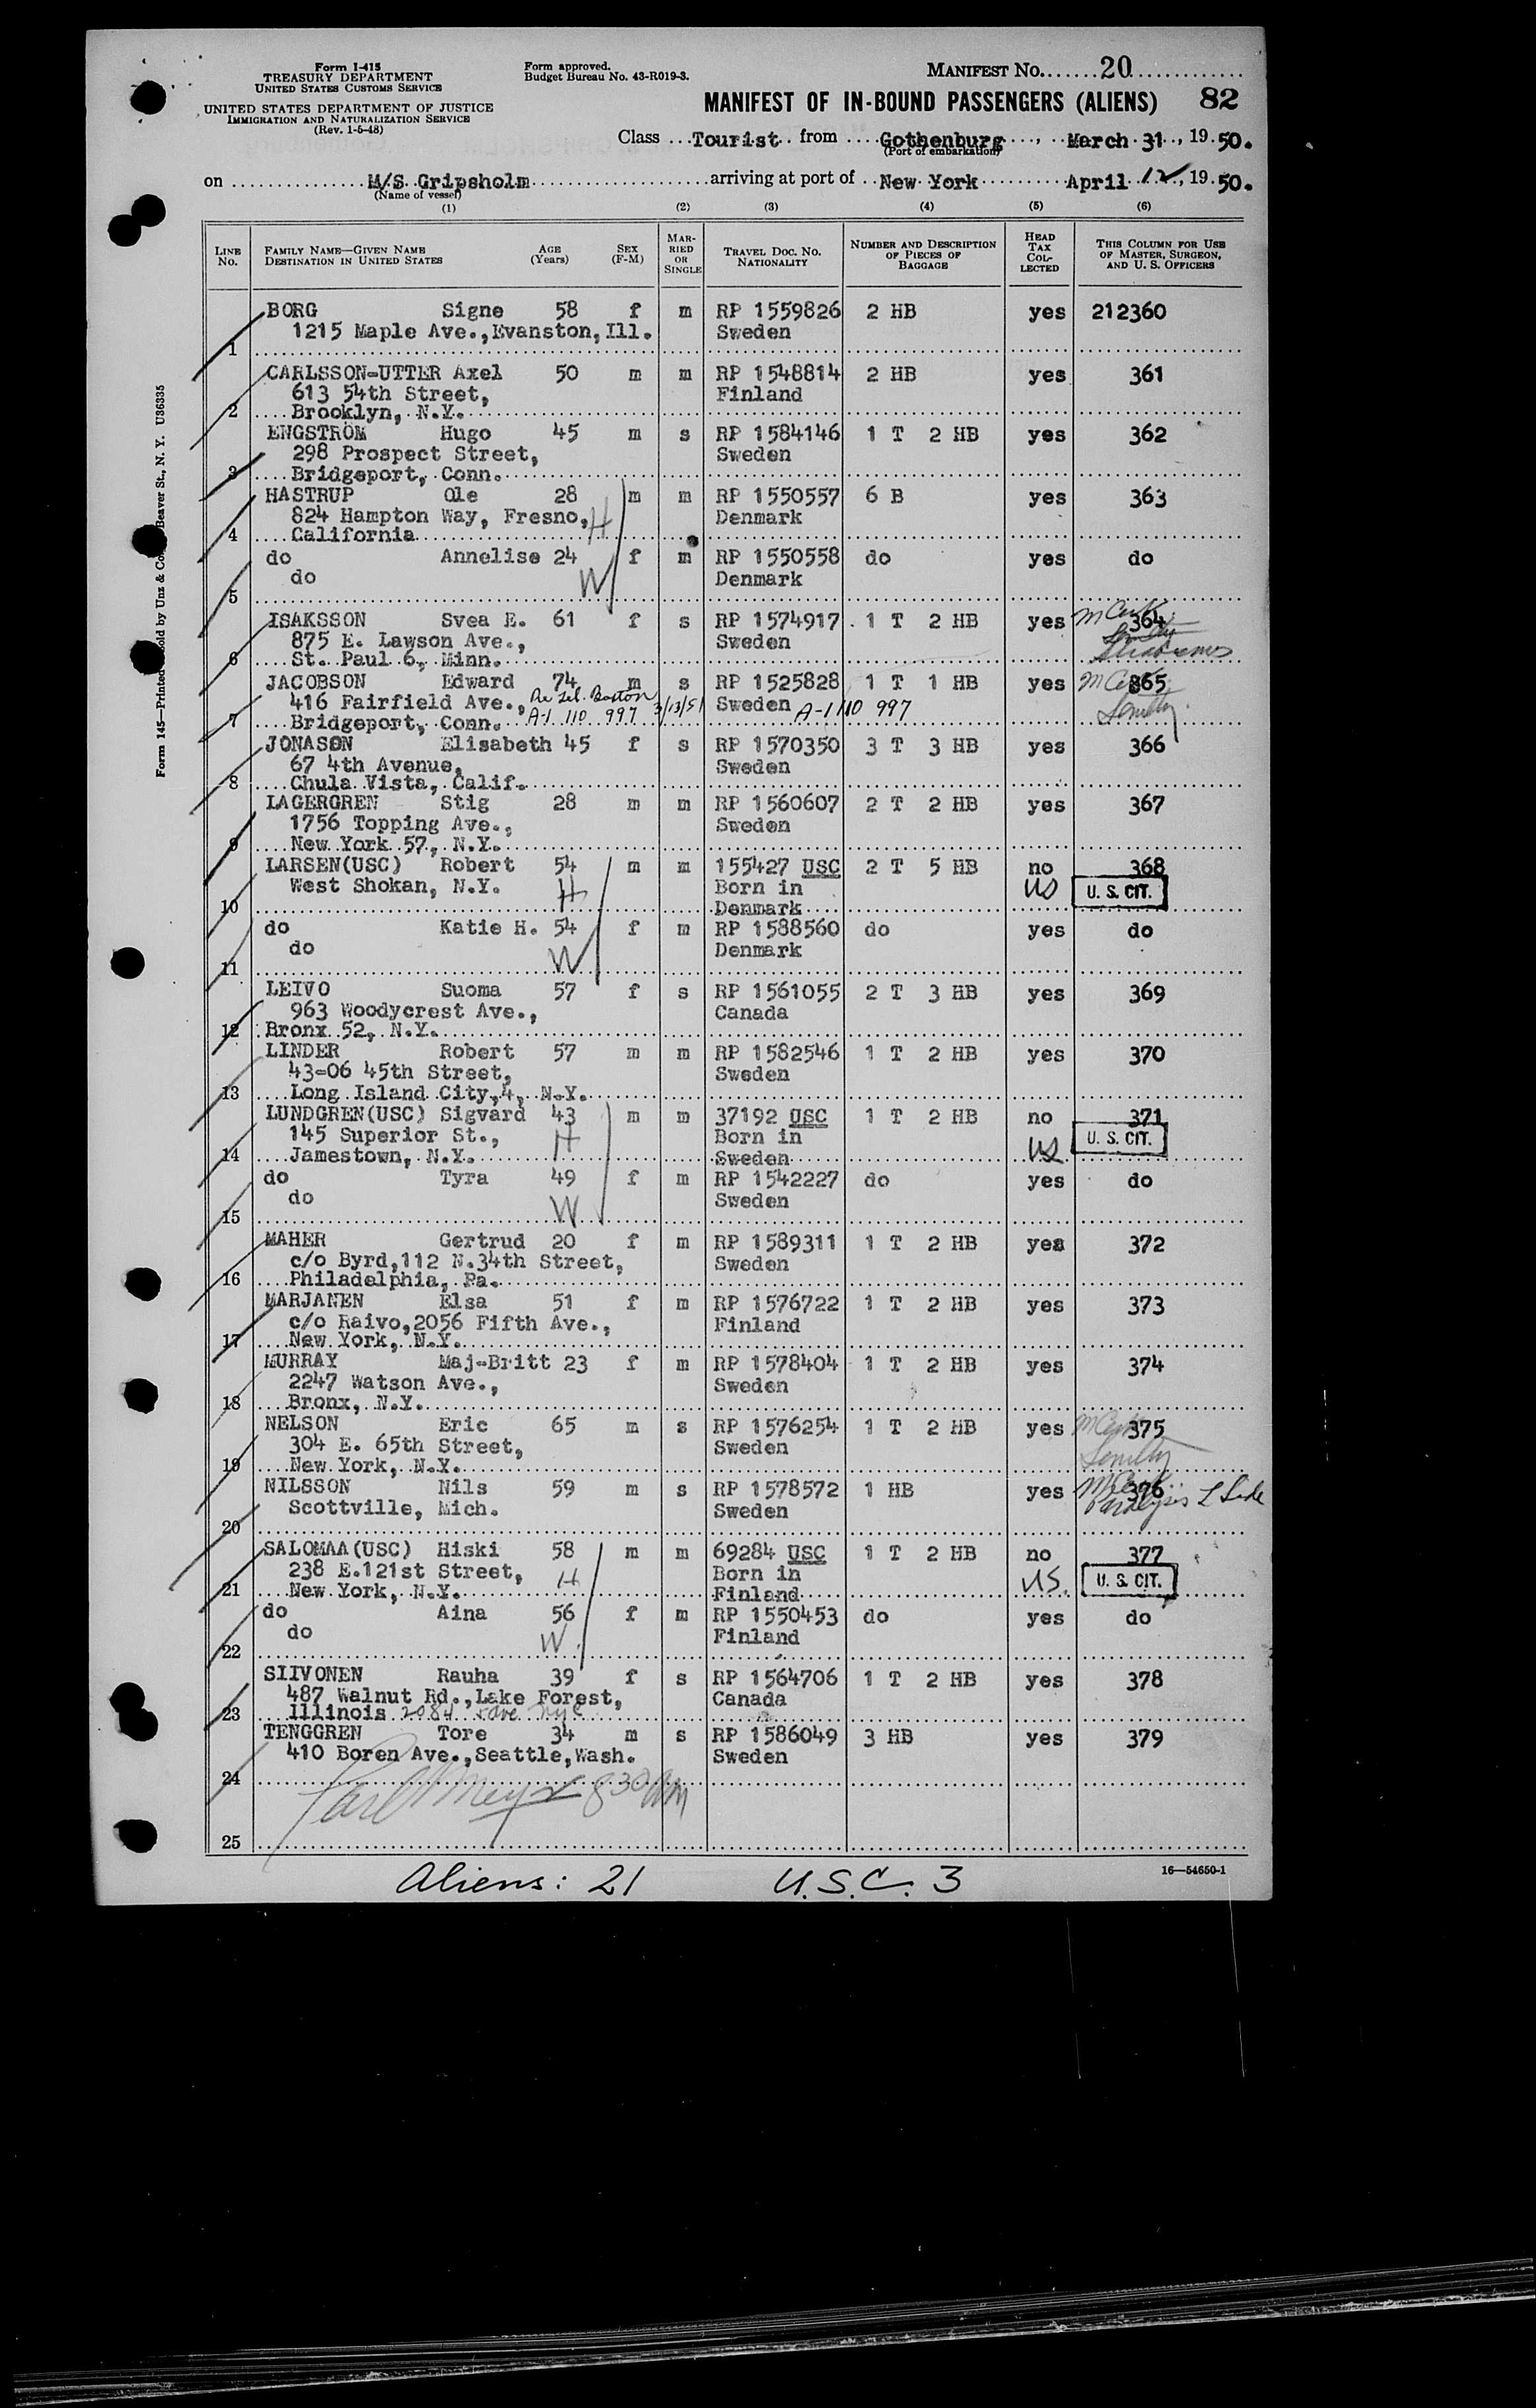 Form I-415
TREASURY DEPARTMENT
UNITED STATES CUSTOMS SERVICE
UNITED STATES DEPARTMENT OF JUSTICE
IMMIGRATION AND NATURALIZATION SERVICE
(Rev. 1-5-48)
Form approved.
Budget Bureau No. 43-R019-3.
MANIFEST No. 20
MANIFEST OF IN-BOUND PASSENGERS (ALIENS) 82
Class Tourist from Gothenburg, March 31, 1950.
(Port of embarkation)
on M/S Gripsholm arriving at port of New York April 12, 1950.
(Name of vessel)
(1) (2) (3) (4) (5) (6)
LINE No. FAMILY NAME—GIVEN NAME DESTINATION IN UNITED STATES AGE (Years) SEX (F-M) MARRIED OR SINGLE TRAVEL DOC. NO. NATIONALITY NUMBER AND DESCRIPTION OF PIECES OF BAGGAGE HEAD TAX COLLECTED THIS COLUMN FOR USE OF MASTER, SURGEON, AND U. S. OFFICERS
BORG Signe 58 f m RP 1559826 2 HB yes 212360
1215 Maple Ave.,Evanston,Ill. Sweden
1
CARLSSON-UTTER Axel 50 m m RP 1548814 2 HB yes 361
613 54th Street, Finland
2 Brooklyn, N.Y.
ENGSTRÖM Hugo 45 m s RP 1584146 1 T 2 HB yes 362
298 Prospect Street, Sweden
3 Bridgeport, Conn.
HASTRUP Ole 28 m m RP 1550557 6 B yes 363
824 Hampton Way, Fresno, H Denmark
4 California
do Annelise 24 f m RP 1550558 do yes do
do W Denmark
5
ISAKSSON Svea E. 61 f s RP 1574917 1 T 2 HB yes 364
875 E. Lawson Ave., Sweden
6 St. Paul 6, Minn.
JACOBSON Edward 74 m s RP 1525828 1 T 1 HB yes 365
416 Fairfield Ave., Boston 3/13/51 Sweden A-1 110 997
7 Bridgeport, Conn. A-1 110 997
JONASON Elisabeth 45 f s RP 1570350 3 T 3 HB yes 366
67 4th Avenue, Sweden
8 Chula Vista, Calif.
LAGERGREN Stig 28 m m RP 1560607 2 T 2 HB yes 367
1756 Topping Ave., Sweden
9 New York 57, N.Y.
LARSEN(USC) Robert 54 m m 155427 USC 2 T 5 HB no 368
West Shokan, N.Y. H Born in US U. S. CIT.
10 Denmark
do Katie H. 54 f m RP 1588560 do yes do
do W Denmark
11
LEIVO Suoma 57 f s RP 1561055 2 T 3 HB yes 369
963 Woodycrest Ave., Canada
12 Bronx 52, N.Y.
LINDER Robert 57 m m RP 1582546 1 T 2 HB yes 370
43-06 45th Street, Sweden
13 Long Island City,4, N.Y.
LUNDGREN(USC) Sigvard 43 m m 37192 USC 1 T 2 HB no 371
145 Superior St., H Born in US U. S. CIT.
14 Jamestown, N.Y. Sweden
do Tyra 49 f m RP 1542227 do yes do
do W Sweden
15
MAHER Gertrud 20 f m RP 1589311 1 T 2 HB yes 372
c/o Byrd,112 N.34th Street, Sweden
16 Philadelphia, Pa.
MARJANEN Elsa 51 f m RP 1576722 1 T 2 HB yes 373
c/o Raivo,2056 Fifth Ave., Finland
17 New York, N.Y.
MURRAY Maj-Britt 23 f m RP 1578404 1 T 2 HB yes 374
2247 Watson Ave., Sweden
18 Bronx, N.Y.
NELSON Eric 65 m s RP 1576254 1 T 2 HB yes 375
304 E. 65th Street, Sweden
19 New York, N.Y.
NILSSON Nils 59 m s RP 1578572 1 HB yes 376
Scottville, Mich. Sweden Paralysis L Side
20
SALOMAA(USC) Hiski 58 m m 69284 USC 1 T 2 HB no 377
238 E.121st Street, H Born in US. U. S. CIT.
21 New York, N.Y. Finland
do Aina 56 f m RP 1550453 do yes do
do W Finland
22
SIIVONEN Rauha 39 f s RP 1564706 1 T 2 HB yes 378
487 Walnut Rd.,Lake Forest, Canada
23 Illinois
TENGGREN Tore 34 m s RP 1586049 3 HB yes 379
410 Boren Ave.,Seattle,Wash. Sweden
24
8 30 AM
25
16—54650-1
Aliens: 21 U.S.C. 3